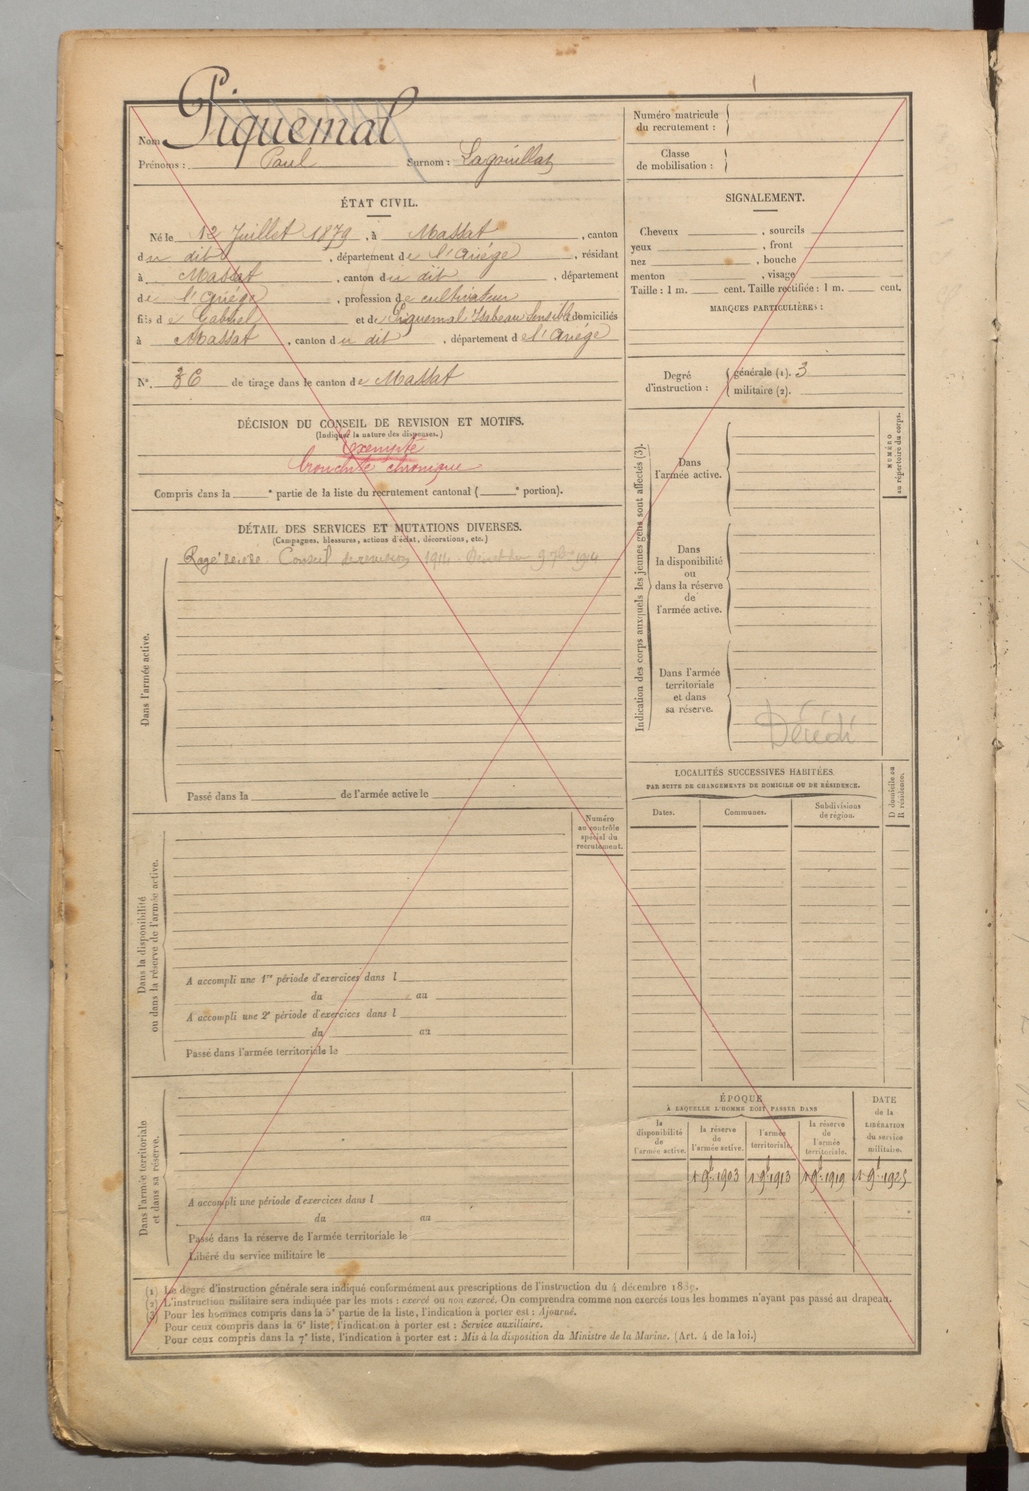 Nom Piquemal
Prénoms : Paul Surnom : Lagouillat
ÉTAT CIVIL.
Né le 12 Juillet 1879, à Massat, canton
du dit, département de l'Ariège, résidant
à Massat, canton du dit, département
de l'Ariége, profession de cultivateur
fils de Gabriel et de Piquemal Isabeau Sensible domiciliés
à Massat, canton du dit, département de l'Ariége
N°. 36 de tirage dans le canton de Massat
DÉCISION DU CONSEIL DE REVISION ET MOTIFS.
(Indiquer la nature des dispenses.)
Exempté
bronchite chronique
Compris dans la e partie de la liste du recrutement cantonal ( e portion).
DÉTAIL DES SERVICES ET MUTATIONS DIVERSES.
(Campagnes, blessures, actions d'éclat, décorations, etc.)
Conseil de revision 1914 Décret du 9 7bre 1914
Dans l'armée active.
Passé dans la de l'armée active le
Numéro
au contrôle
spécial du
recrutement.
Dans la disponibilité
ou dans la réserve de l'armée active.
A accompli une 1re période d'exercices dans l
du au
A accompli une 2e période d'exercices dans l
du au
Passé dans l'armée territoriale le
Dans l'armée territoriale
et dans sa réserve.
A accompli une période d'exercices dans l
du au
Passé dans la réserve de l'armée territoriale le
Libéré du service militaire le
Numéro matricule
du recrutement :
Classe
de mobilisation :
SIGNALEMENT.
Cheveux , sourcils
yeux , front
nez , bouche
menton , visage
Taille : 1 m. cent. Taille rectifiée : 1 m. cent.
MARQUES PARTICULIÈRES :
Degré
d'instruction :
générale (1). 3
militaire (2).
Indication des corps auxquels les jeunes gens sont affectés (3).
NUMÉRO
au répertoire du corps.
Dans
l'armée active.
Dans
la disponibilité
ou
dans la réserve
de
l'armée active.
Dans l'armée
territoriale
et dans
sa réserve.
Décédé
LOCALITÉS SUCCESSIVES HABITÉES
PAR SUITE DE CHANGEMENTS DE DOMICILE OU DE RÉSIDENCE.
D domicile ou
R résidence.
Dates. Communes. Subdivisions
de région.
ÉPOQUE
À LAQUELLE L'HOMME DOIT PASSER DANS
la
disponibilité
de
l'armée active.
la réserve
de
l'armée active.
l'armée
territoriale.
la réserve
de
l'armée
territoriale.
DATE
de la
LIBÉRATION
du service
militaire.
1 9bre 1903 1 9bre 1913 1 9bre 1919 1 9bre 1925
(1) Le degré d'instruction générale sera indiqué conformément aux prescriptions de l'instruction du 4 décembre 1889.
(2) L'instruction militaire sera indiquée par les mots : exercé ou non exercé. On comprendra comme non exercés tous les hommes n'ayant pas passé au drapeau.
(3) Pour les hommes compris dans la 5e partie de la liste, l'indication à porter est : Ajourné.
Pour ceux compris dans la 6e liste, l'indication à porter est : Service auxiliaire.
Pour ceux compris dans la 7e liste, l'indication à porter est : Mis à la disposition du Ministre de la Marine. (Art. 4 de la loi.)